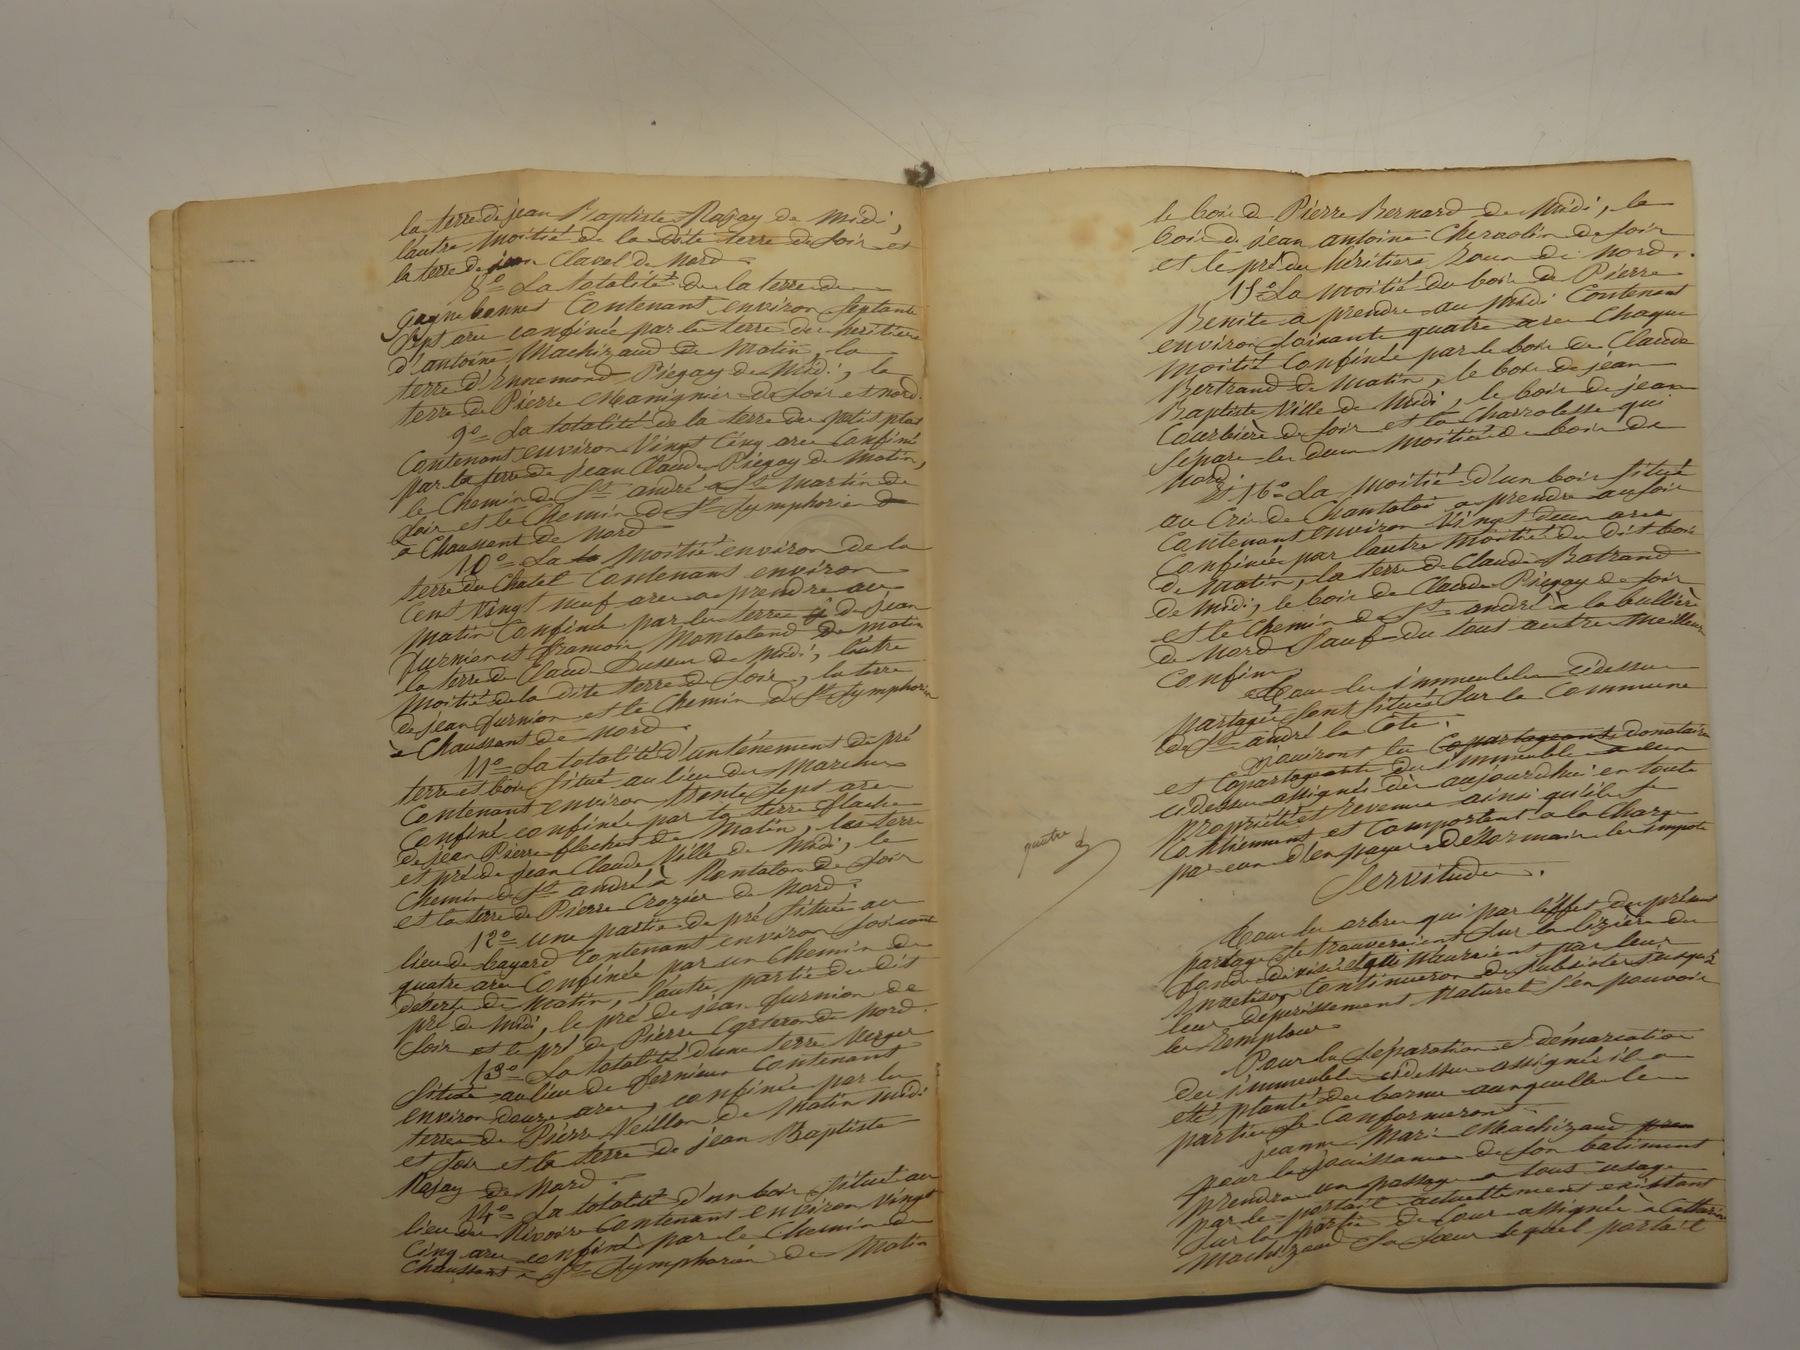 la terre de jean Baptiste Rajay de Midi,
l'autre moitié de la dite terre de soir et
la terre de jean Clavel de Nord.
8° La totalité de la terre de
gagnebonnet Contenant environ Septante
Sept ares confinée par la terre des héritiers
d'antoine Machizaud de Matin, la
terre d'Ennemond Piegay de Midi, la
terre de Pierre Manignier de Soir et nord.
9° La totalité de la terre du petit plat
Contenant environ Vingt Cinq ares Confiné
par la terre de jean Claude Piégay de Matin,
le Chemin de St andré a St Martin de
Soir et le Chemin de St Symphorien d
a Chaussant de Nord
10° La la Moitié environ de la
terre du Chatel Contenant environ
Cent Vingt neuf ares a prendre au
matin Confinée par les terres de jean
furnion et francois Montaland de Matin
la terre de Claude de Midi, l'autre
Moitié de la dite terre de Soir, la terre
de jean furnion et le Chemin de St Symphorien
a Chaussant de Nord.
11° La totalité d'un ténement de pré
terre et bois Situé au lieu des Marches
Contenant environ trente Sept ares
Confiné confinée par la terre flache
de jean Pierre fleches de Matin, les terre
et pré de jean Claude Ville de Midi, le
Chemin de St andré à Rontalon de Soir
et la terre de Pierre Crozier de Nord.
12° une partie de pré Située au
lieu de bayard Contenant environ Soixante
quatre ares Confinée par un Chemin de
deserte de Matin, l'autre partie du dit
pré de Midi, le pré de jean furnion de
Soir et le pré de Pierre Carteron de Nord.
13° La totalité d'une terre Verger
Située au lieu de fernieux Contenant
environ douze ares, confinée par les
terres de Pierre Veillon de Matin Midi
et Soir et la terre de jean Baptiste
Rajay de Nord.
14° La totalité d'un bois Situé au
lieu du Rivoire Contenant environ Vingt
Cinq ares confiné par le Chemin de
Chaussant a St Symphorien de Matin
le bois de Pierre Bernard de Midi, le
bois de jean antoine de Soir
et le pré des héritiers de Nord.
15° La moitié du bois de Pierre
Benite a prendre au Midi Contenant
environ Soixante quatre ares Chaque
moitié Confinée par le bois de Claude
Bertrand de Matin, le bois de jean
Baptiste Ville de Midi, le bois de jean
Courbière de Soir et la Charrolesse qui
Sépare les deux Moitiés de bois de
Nord
Et 16° La Moitié d'un bois Situé
au Cret de Chantaloi a prendre au Soir
Contenant environ Vingt deux ares
Confinée par l'autre Moitié du dit bois
de Matin, la terre de Claude Batrand
de Midi, le bois de Claude Piegay de Soir
et le Chemin de St andré à la bullière
de Nord Sauf du tout autres Meilleurs
Confins.
Tous les immeubles cidessus
partagés Sont Situés Sur la Commune
de St andré la Cote.
Jouiront les Copartageants donataires
et Copartageants des immeubles a eux
cidessus assignés dès aujourd'hui en toute
propriété et revenus ainsi qu'ils Se
Contiennent et Comportent a la Charge
par eux d'en payer désormais les impots
quatre
Servitudes.
Tous les arbres qui par l'effet du présent
partage Se trouveraient Sur la lizière des
fonds divisés et qui Nuiraient par leur
Continueron de Subsister jusqu'à
leur dépérissement Naturel S'en pouvoir
les Remplacer
Pour la Séparation et démarcation
des immeubles cidessus assignés il a
été planté des bornes auxquelles les
parties Se Conformeront.
jeanne Marie Machizaud pren
pour la jouissance de Son batiment
prendra un passage a tous usage
par le portait actuellement existant
Sur la partie de Cour assignée à Catherine
Machizaud Sa Sœur lequel portait